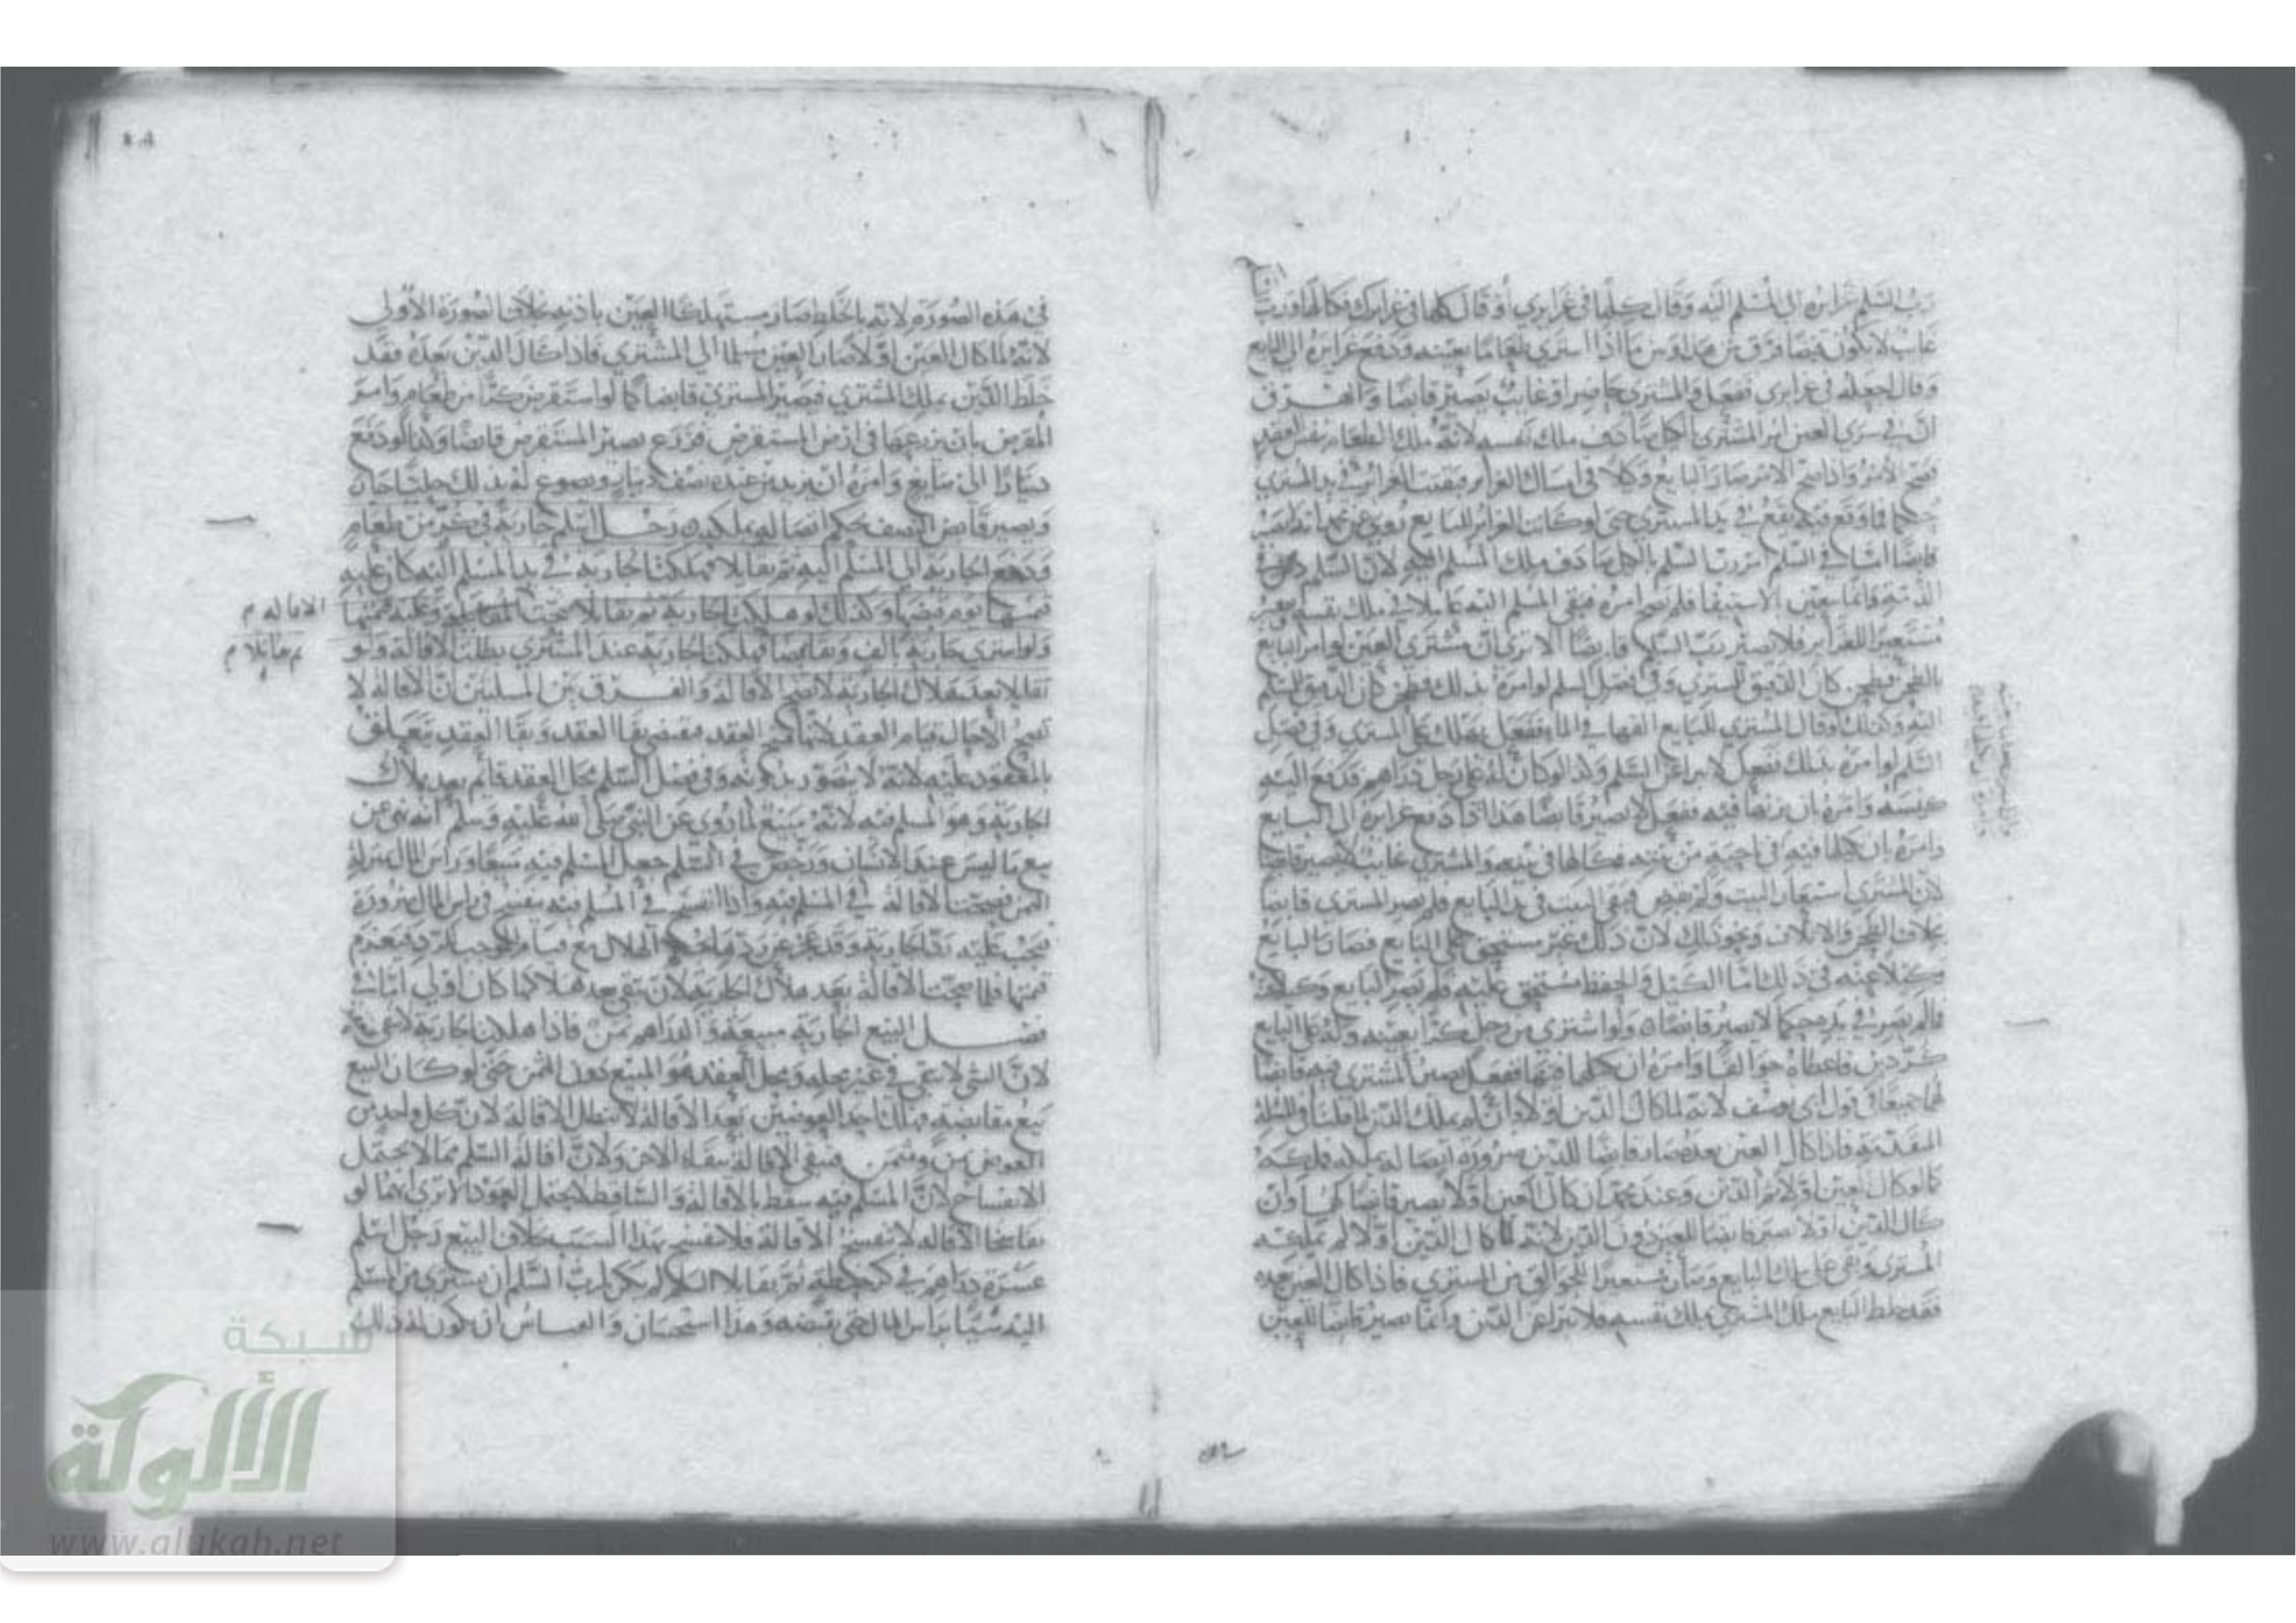 رب السلم غرايره الى المسلم اليه وقال كلها في غرايري أو قال كلها في غرايرك فكالها ورب
غايب لا يكون قبضا فرق بين هذا وبين ما اذا اشترى طعاما بعينه ودفع غرايره الى البايع
وقال اجعله في غرايري ففعل والمشتري حاضر او غايب يصير قابضا والفرق
ان في شرى العين امر المشتري بالكيل صادف ملك نفسه لانه ملك الطعام بنفس العقد
فصح الامر واذا صح الامر صار البايع وكيلا في امساك الغراير فبقيت الغراير في يد المشتري
حكما فما وقع فيه يقع في يد المشتري حتى لو كانت الغراير للبايع روي عن محمد انه لا يصير
قابضا اما في السلم امر رب السلم بالكيل صادف ملك المسلم اليه لان السلم
الذمة وانما يتعين بالاستيفا فلم يصح امره فبقي المسلم اليه عاملا في ملك نفسه
مستعيرا للغراير فلا يصير رب السلم قابضا الا ترى ان مشتري العين لو امر البايع
بالطحن فطحن كان الدقيق للمشتري وفي فصل السلم لو امره بذلك فطحن كان الدقيق للمسلم
اليه وكذلك لو قال المشتري للبايع القها في الماء ففعل يهلك على المشتري وفي فصل
السلم لو امره بذلك ففعل لا يبرا عن السلم ولذا لو كان له على رجل دراهم فدفع اليه
كيسه وامره ان يزنها فيه ففعل لا يصير قابضا هذا اذا دفع غرايره الى البايع
وامره ان يكيلها فيه في ناحية من بيته فكالها في بيته والمشتري غايب لا يصير قابضا
لان المشتري استعار البيت ولم يقبض فبقي البيت في يد البايع فلم يصر المشتري قابضا
بخلاف الطحن والاتلاف ونحو ذلك لان ذلك غير مستحق على البايع فصار البايع
وكيلا عنه في ذلك اما الكيل والحفظ مستحق عليه فلم يصر البايع وكيلا
فلم يصر في يده حكما لا يصير قابضا ولو اشترى من رجل كرا بعينه وله على البايع
كر دين فاعطاه جوالقا وامره ان يكيلهما فيها ففعل يصير المشتري فيه قابضا
لهما جميعا في قول ابي يوسف لانه لما كال الدين اولا وان لم يملك الدين لما قلنا في المسئلة
المتقدمة فاذا كال العين بعده صار قابضا للدين ضرورة اتصاله بملكه فملكه
كما لو كال العين اولا ثم الدين وعند محمد ان كال العين اولا يصير قابضا لهما وان
كال الدين اولا يصير قابضا للعين دون الدين لانه لما كال الدين اولا لم يملكه
المشتري وبقي على ملك البايع وصار مستعيرا للجوالق من المشتري فاذا كال العين بعده
فقد خلط البايع ملك المشتري بملك نفسه فلا يبرا عن الدين وانما يصير قابضا للعين
في هذه الصورة لانه بالخلط صار مستهلكا العين باذنه بخلاف الصورة الأولى
لانه لما كال العين اولا صار العين مسلما الى المشتري فاذا كال الدين بعده فقد
خلط الدين بملك المشتري فيصير المشتري قابضا كما لو استقرض كرا من طعام وامر
المقرض بان يزرعها في ارض المستقرض فزرع يصير المستقرض قابضا وكذا لو دفع
دينارا الى صايغ وامره ان يزيد من عنده نصف دينار ويصوغ له بذلك حليا جاز
ويصير قابضا للنصف بحكم اتصاله بملكه رجل اسلم جارية في كر من طعام
ودفع الجارية الى المسلم اليه ثم تقايلا فهلكت الجارية في يد المسلم اليه كان عليه
قيمتها يوم قبضها وكذلك لو هلكت الجارية ثم تقايلا صحت المقايلة وعليه قيمتها
ولو اشترى جارية بالف وتقابضا فهلكت الجارية عند المشتري بطلت الاقالة ولو
تقايلا بعد هلاك الجارية لا تصح الاقالة والفرق بين المسئلتين ان الاقالة لا
تصح الا حال قيام العقد لانها فسخ العقد فيقتضي بقا العقد وبقا العقد يتعلق
بالمعقود عليه لانه لا يتصور بدونه وفي فصل السلم محل العقد قائم بعد هلاك
الجارية وهو المسلم فيه لانه مبيع لما روي عن النبي صلى الله عليه وسلم انه نهى عن
بيع ما ليس عند الانسان ورخص في السلم جعل المسلم فيه مبيعا وراس المال بمنزلة
الثمن فصحت الاقالة في المسلم فيه واذا انفسخ في المسلم فيه ينفسخ في راس المال ضرورة
فيجب عليه رد الجارية وقد عجز عن ردها بعد الهلاك مع قيام الموجب للرد فيغرم
قيمتها فلما صحت الاقالة بعد هلاك الجارية لان تبقى بعد هلاكها كان اولى اما في
فصل البيع الجارية مبيعة والدراهم ثمن فاذا هلكت الجارية لا يبقى
لان الشي لا يبقى في غير محله ومحل العقد هو المبيع دون الثمن حتى لو كان البيع
بيع مقايضة فهلك احد العوضين بعد الاقالة لا تبطل الاقالة لان كل واحد من
العوضين ثمن ومثمن فتبقى الاقالة ببقاء الاخر ولان اقالة السلم مما لا يحتمل
الانفساخ لان المسلم فيه سقط بالاقالة والساقط لا يحتمل العود الا ترى انهما لو
تفاسخا الاقاله لا تنفسخ الاقالة فلا تنفسخ بهذا السبب بخلاف البيع رجل اسلم
عشرة دراهم في كر حنطة ثم تقايلا السلم لم يكن لرب السلم ان يشتري من المسلم
اليه شيا براس المال حتى يقبضه وهذا استحسان والقياس ان يكون له ذلك
الاقاله م
ثم تقايلا م
شبكة
الألوكة
www.alukah.net